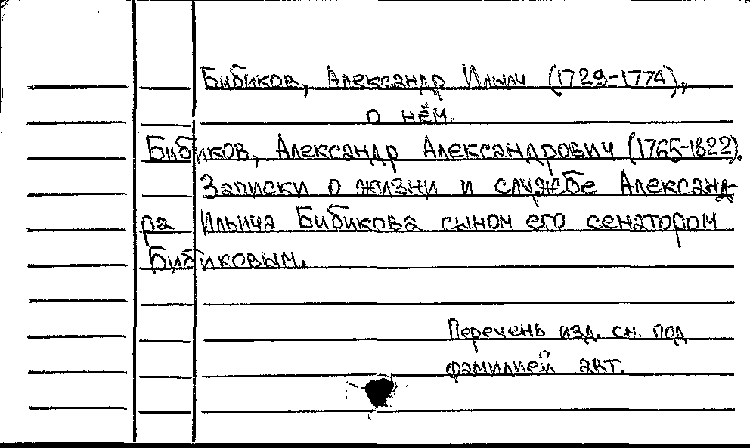 Бибиков, Александр Ильич (1729-1774),
о нём.
Бибиков, Александр Александрович (1765-1822).
Записки о жизни и службе Александ-
ра Ильича Бибикова сыном его сенатором
Бибиковым.
Перечень изд. см. под
фамилией авт.